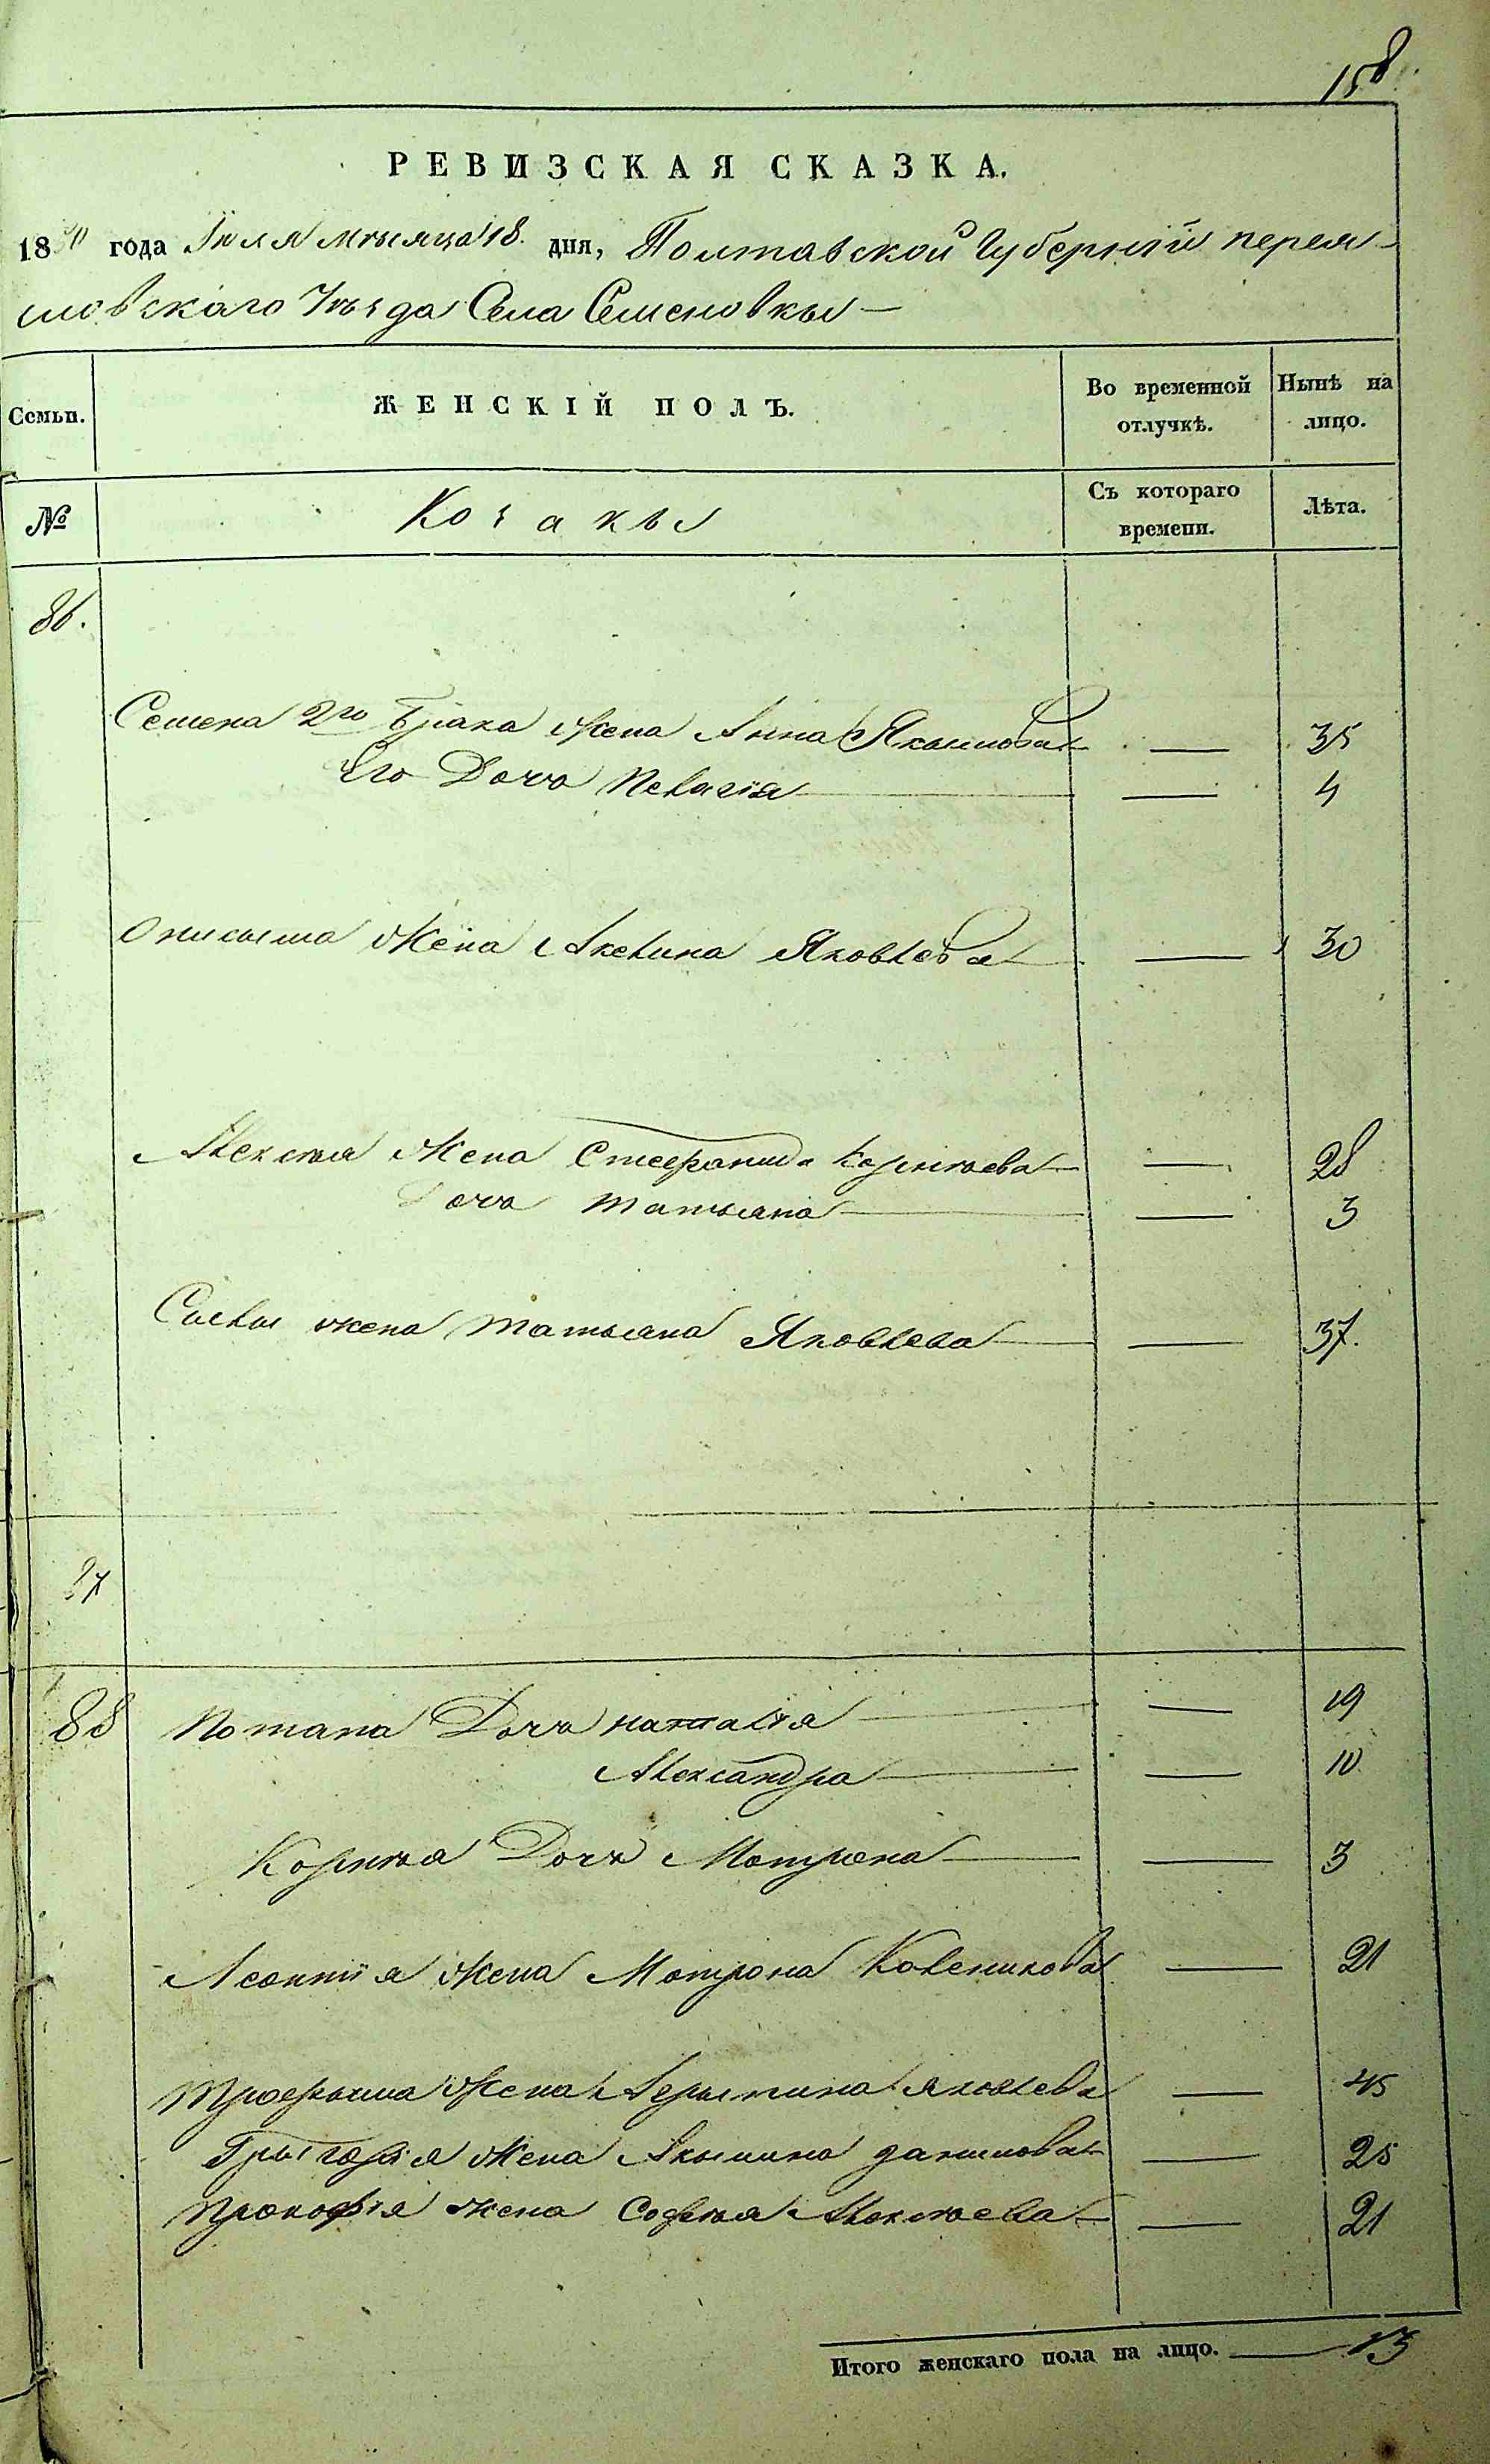 158
РЕВИЗСКАЯ СКАЗКА.
1850 года Июля мѣсяца 18. дня, Полтавской Губерніи перея-
славскаго Уѣзда Села Семеновкы
Семьи. ЖЕНСКІЙ ПОЛЪ. Во временной отлучкѣ. Нынѣ на лицо.
№ Козакы Съ котораго времени. Лѣта.
86.
Семена 2го Брака Жена Анна Якымова — 35
Его Дочь Пелагія — 4
Онисыма Жена Акелина Яковлева — 30
Алексѣя Жена Стефанида Корнѣева — 28
Дочь Татьяна — 3
Силы жена Татьяна Яковлева — 37.
87
88 Потапа Дочь наталія — 19
Александра — 10
Корнѣя Дочь Мотрона — 3
Леонтія Жена Мотрона — 21
Трофыма Жена яковлева — 45
Грыгорія Жена Акылина данилова — 25
Прокофія жена Софія Алексѣева — 21
Итого женскаго пола на лицо. — 13